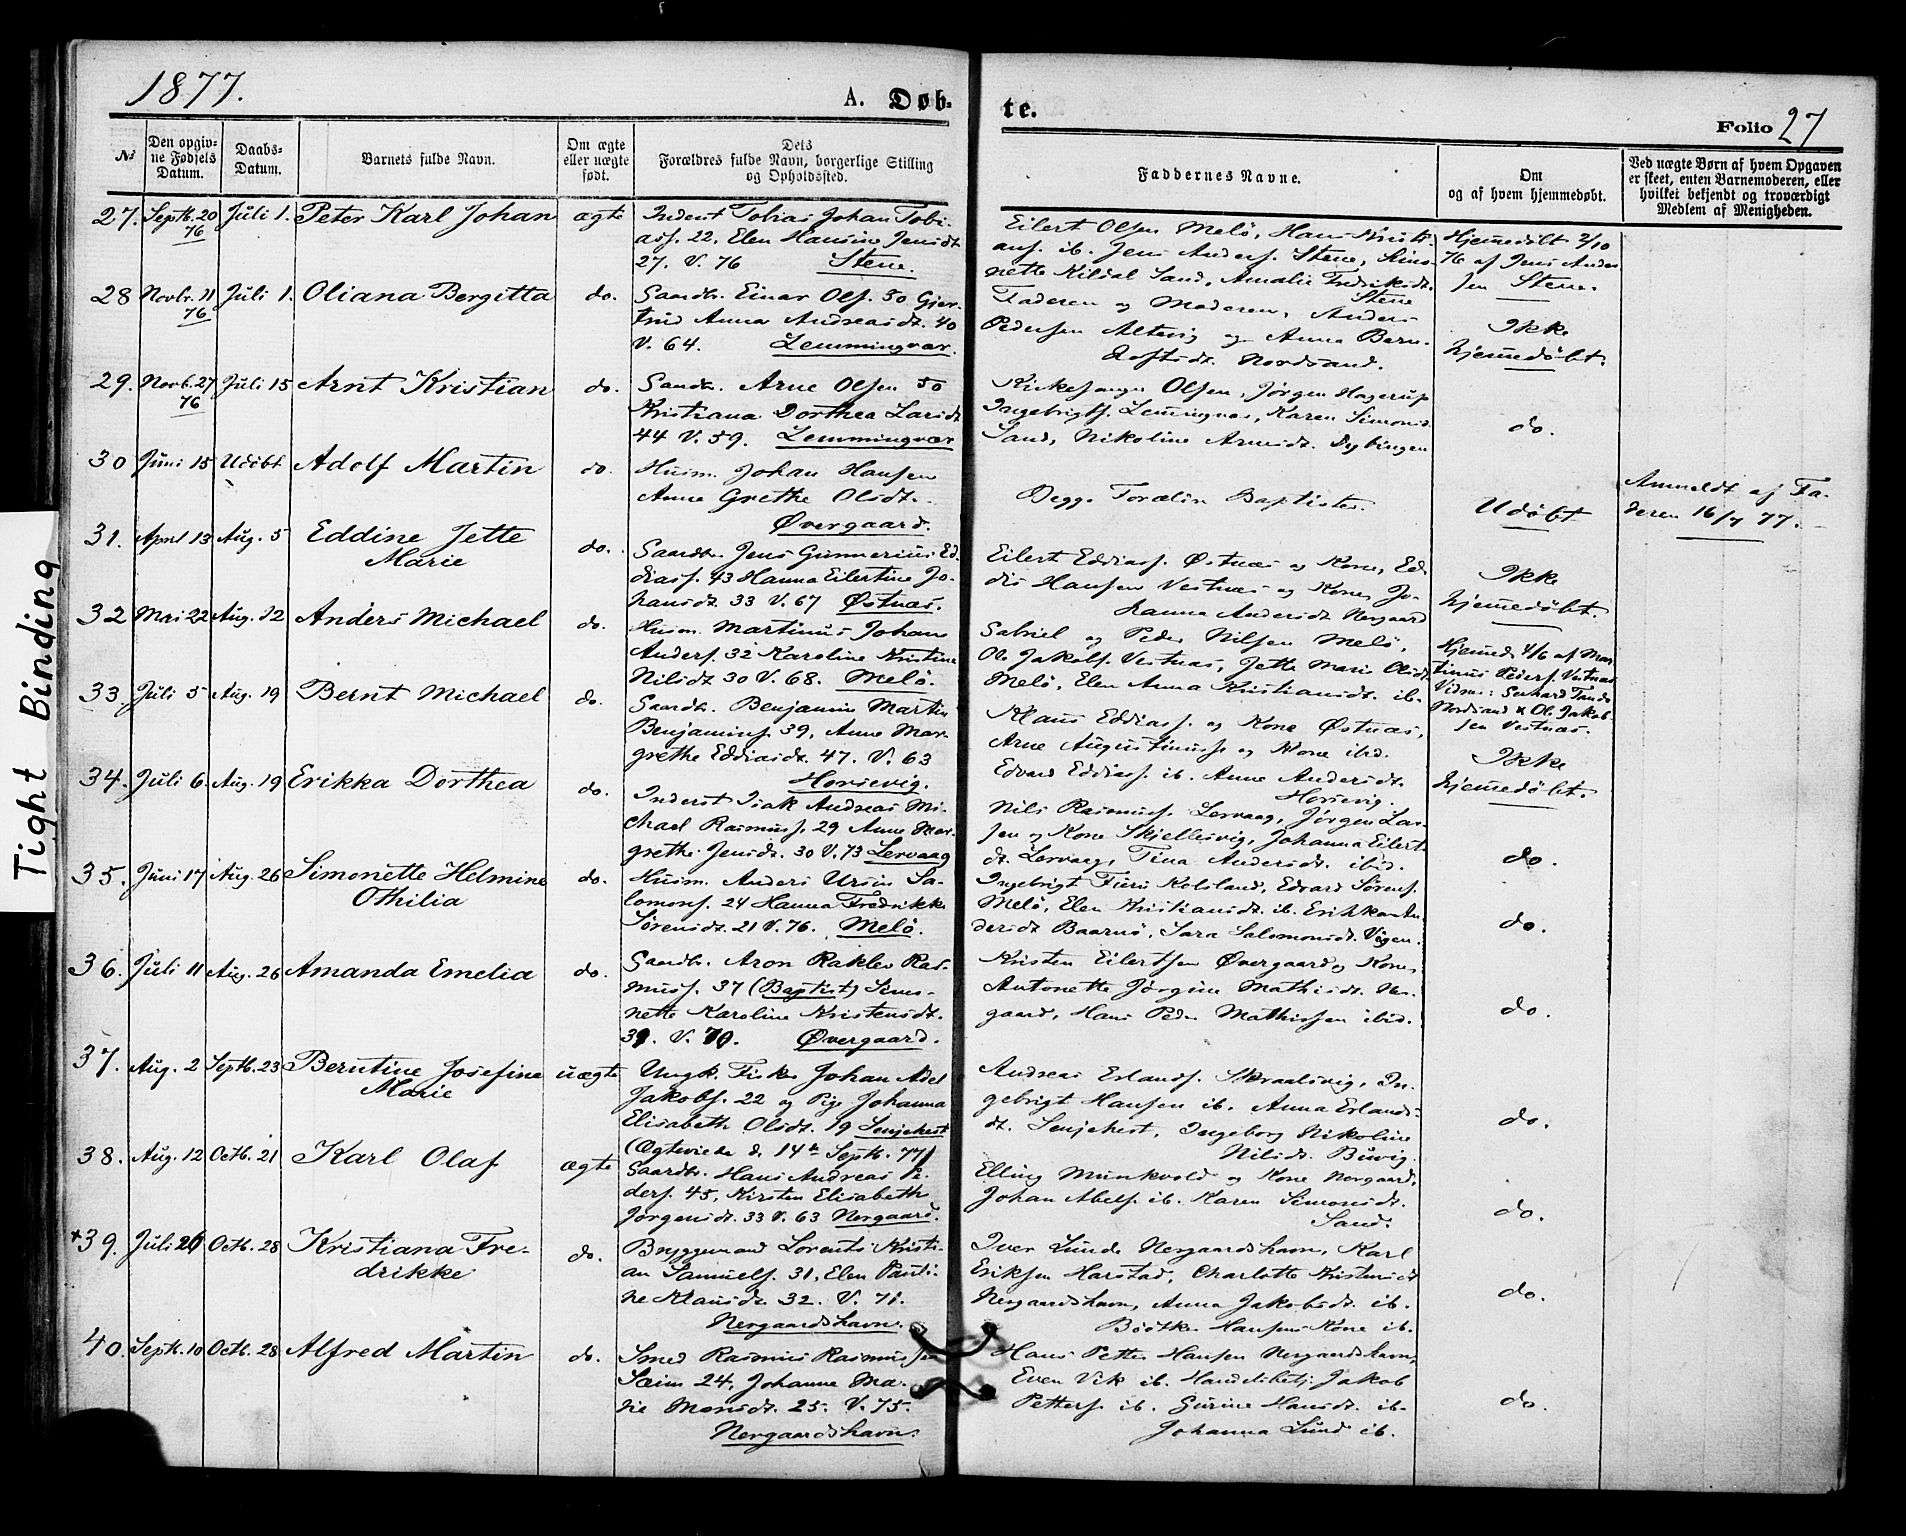 1877.
A. Døb-
te.
Folio 27
№
Den opgiv-
ne Fødsels
Datum.
Daabs-
Datum.
Barnets fulde Navn.
Om ægte
eller uægte
født.
Dets
Forældres fulde Navn, borgerlige Stilling
og Opholdssted.
Faddernes Navne.
Om
og af hvem hjemmedøbt.
Ved uægte Børn af hvem Opgaven
er skeet, enten Barnemoderen, eller
hvilket bekjendt og troværdigt
Medlem af Menigheden.
27. Septb. 20 76 Juli 1. Peter Karl Johan ægte
Inderst Tobias Johan Tobi-
ass. 22, Elen Hansine Jensdt.
27. V. 76 Stene.
Eilert Olsen Melö, Hans Kristi-
ans. ib. Jens Anders. Stene, Simo-
nette Kildal Sand, Amalie Fredriksdt.
Stene
Hjemedöbt 2/10
76 af Jens Ander
sen Stene.
28 Novbr. 11 76 Juli 1. Oliana Bergitta do.
Gaardbr. Einar Ols. 50 Gjer-
trud Anna Andreasdt. 40
V. 64. Lemmingvær.
Faderen og Moderen, Anders
Pedersen Altevig og Anna Bern-
hoftsdt. Nordsand.
Ikke
hjemedöbt.
29. Novb. 27 76 Juli 15 Arnt Kristian do.
Gaardbr. Arne Olsen 50
Kristiana Dorthea Larsdt
44 V. 59. Lemmingvær
Kirkesanger Olsen, Jörgen Hagerup
Ingebrigts. Lemingvær, Karen Simonsd.
Sand, Nikoline Arnsdt. Dybingen
do.
30 Juni 15 Udöbt Adolf Martin do.
Husm. Johan Hansen
Anne Grethe Olsdt.
Øvergaard.
Begge Forældre Baptister.
Udöbt
Anmeldt af Fa-
deren 16/7 77.
31. April 13 Aug. 5 Eddine Jette
Marie do.
Gaardbr. Jens Gunnerius Ed-
diass. 43 Hanna Eilertine Jo-
hansdt. 33 V. 67 Østnæs.
Eilert Eddiass. Østnæs og Kone, Ed-
dis Hansen Vestnæs og Kone, Jo-
hanna Andersdt Nergaard
Ikke
hjemedöbt.
32 Mai 22 Aug. 12 Anders Michael do.
Husm. Martinus Johan
Anders. 32 Karoline Kristine
Nilsdt 30 V. 68. Melö.
Gabriel og Peder Nilsen Melö,
Ole Jakobs. Vestnæs, Jette Marie Olsdt
Melö, Elen Anna Kristiansdt. ib.
Hjemed. 4/6 af Mar-
tinus Peders. Vestnæs
Vidn.: Gerhard Tande
Nordsand & Ol. Jakob-
sen Vestnæs.
33. Juli 5 Aug. 19 Bernt Michael do.
Gaardbr. Benjamin Martin
Benjamins. 39, Anne Mar-
grethe Eddiasdt. 47. V. 63
Horsevig.
Klaus Eddiass. og Kone Østnæs,
Arne Augustinuss. og Kone ibid.
Edvard Eddiass. ib. Anne Andersdt.
Horsevig.
Ikke
hjemedöbt.
34. Juli 6. Aug. 19 Erikka Dorthea do.
Inderst Isak Andreas Mi-
chael Rasmuss. 29 Anne Mar-
grethe Jensdt. 30 V. 73 Lervaag
Nils Rasmuss. Lervaag, Jörgen Lar-
sen og Kone Skjellesvig, Johanna Eilerts
dt. Lervaag, Tina Andersdt. ibid.
do.
35. Juni 17 Aug. 26 Simonette Helmine
Othilia do.
Husm. Anders Ursin Sa-
lomons. 24 Hanna Fredrikke
Sörensdt. 21 V. 76. Melö.
Ingebrigt Kolsland, Edvard Sörens.
Melö, Elen Kristiansdt. ib. Erikka An-
dersdt Baarnö, Sara Salomonsdt. Vigen.
do.
36. Juli 11 Aug. 26 Amanda Emelia do.
Gaardbr. Aron Rakles Ras-
muss. 37 (Baptist) Simo-
nette Karoline Kristensdt.
39. V. 70. Øvergaard.
Kristen Eilertsen Øvergaard og Kone,
Antonette Jörgine Mathisdt. Ner-
gaard, Hans Peder Mathissen ibid.
do.
37. Aug. 2 Septb. 23 Berntine Josefine
Marie uægte
Ungk. Fisker Johan Abel
Jakobs. 22 og Pige Johanna
Elisabeth Olsdt. 19 Senjehest
(Ægteviede d. 14de Septb. 77)
Andreas Erlands. Skraalsvig, In-
gebrigt Hansen ib. Anna Erlands-
dt. Senjehest, Ingeborg Nikoline
Nilsdt. Buvig.
do.
38. Aug. 12 Octb. 21 Karl Olaf ægte
Gaardbr. Hans Andreas Pe-
ders. 45, Kirsten Elisabeth
Jörgensdt. 33 V. 63 Nergaard.
Elling Munkvold og Kone Nergaard,
Johan Abels. ib. Karen Simonsdt.
Sand.
do.
+39. Juli 26 Octb. 28 Kristiana Fre-
drikke do.
Bryggemand Lorents Kristi-
an Samuels. 31, Elen Pauli-
ne Klausdt. 32. V. 71.
Nergaardshavn.
Iver Lunde Nergaardshavn, Karl
Eriksen Harstad, Charlotte Kristensdt
Nergaardshavn, Anna Jakobsdt. ib.
Bödker Hansens Kone ib.
do.
40. Septb. 10 Octb. 28 Alfred Martin do.
Smed Rasmus Rasmussen
Sæim 24, Johanne Ma-
rie Monsdt. 25. V. 75.
Nergaardshavn.
Hans Petter Hansen Nergaardshavn,
Even Vik ib. Handelsbetj. Jakob
Petters. ib. Gurine Hansdt. ib.
Johanna Lund ib.
do.
Tight Binding